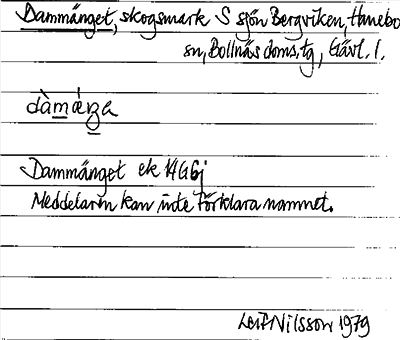 Dammänget, skogsmark S sjön Bergviken, Hanebo
sn, Bollnäs doms.tg, Gävl. l.
dàmæŋa
Dammänget ek 14G6j
Meddelaren kan inte förklara namnet.
Leif Nilsson 1979